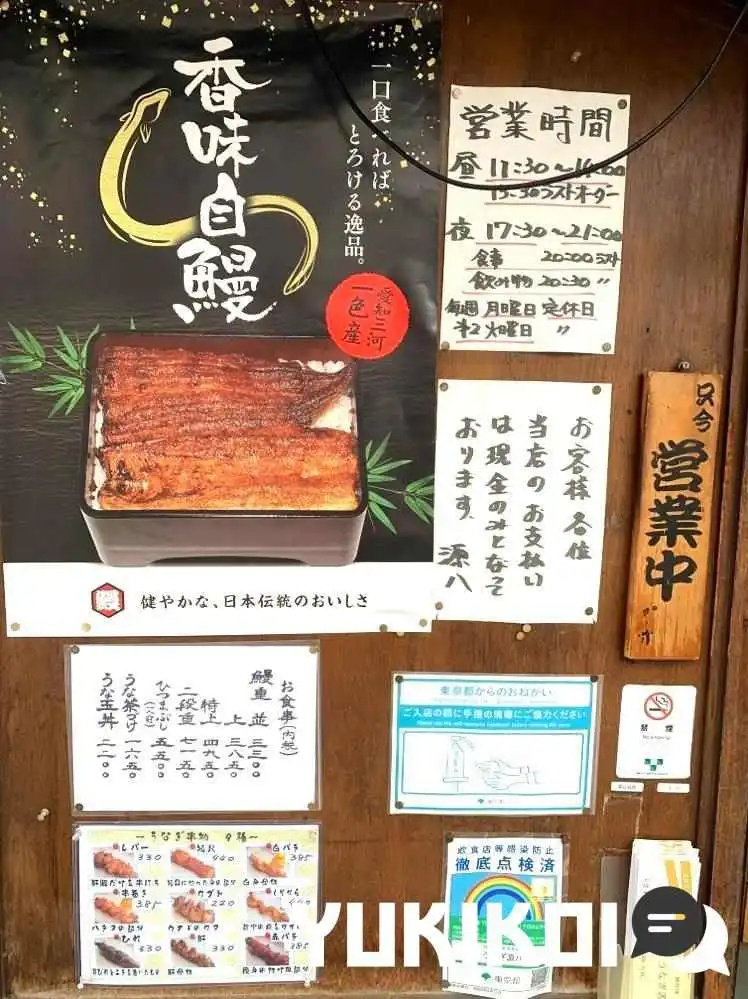 香味自鰻
一口食 れば
とろける逸品。
愛知三河
一色産
健やかな、日本伝統のおいしさ
営業時間
昼 11:30～14:00
13:30ラストオーダー
夜 17:30～21:00
食事 20:00ラスト
飲み物 20:30 〃
毎週 月曜日 定休日
第2 火曜日 〃
お客様各位
当店のお支払い
は現金のみとなって
おります。
源八
只今
営業中
お食事(内税)
鰻重 並 三三〇〇
上 三八五〇
特上 四九五〇
二段重 七一五〇
ひつまぶし 五五〇〇
うな茶づけ 一六五〇
うな玉丼 二二〇〇
東京都からのおねがい
ご入店の際に手指の消毒にご協力ください
禁煙
飲食店等感染防止
徹底点検済
東京都
～うなぎ串物
レバー 330
440
白バラ 385
串巻き 385
330
ひれ 330
肝 330
YUKIKOI